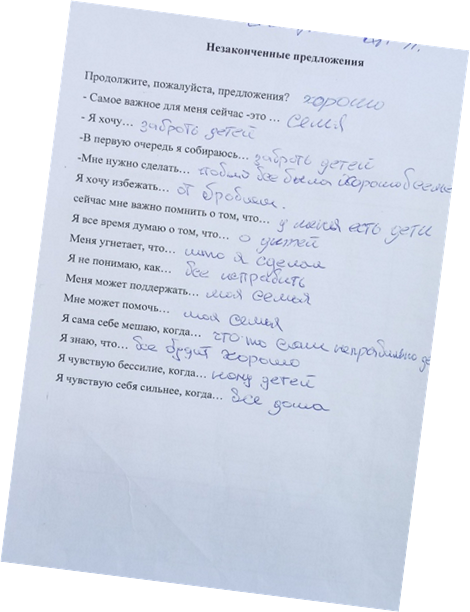 Незаконченные предложения
Продолжите, пожалуйста, предложения? хорошо
- Самое важное для меня сейчас -это … семья
- Я хочу… забрать детей
-В первую очередь я собираюсь… забрать детей
-Мне нужно сделать… чтобы все было хорошо в семье
Я хочу избежать… от
сейчас мне важно помнить о том, что… у меня есть дети
Я все время думаю о том, что… о детей
Меня угнетает, что… што я сделал
Я не понимаю, как… все исправить
Меня может поддержать… моя семья
Мне может помочь… моя семья
Я сама себе мешаю, когда… что то сам неправильно де
Я знаю, что… все будит хорошо
Я чувствую бессилие, когда… детей
Я чувствую себя сильнее, когда… все дома